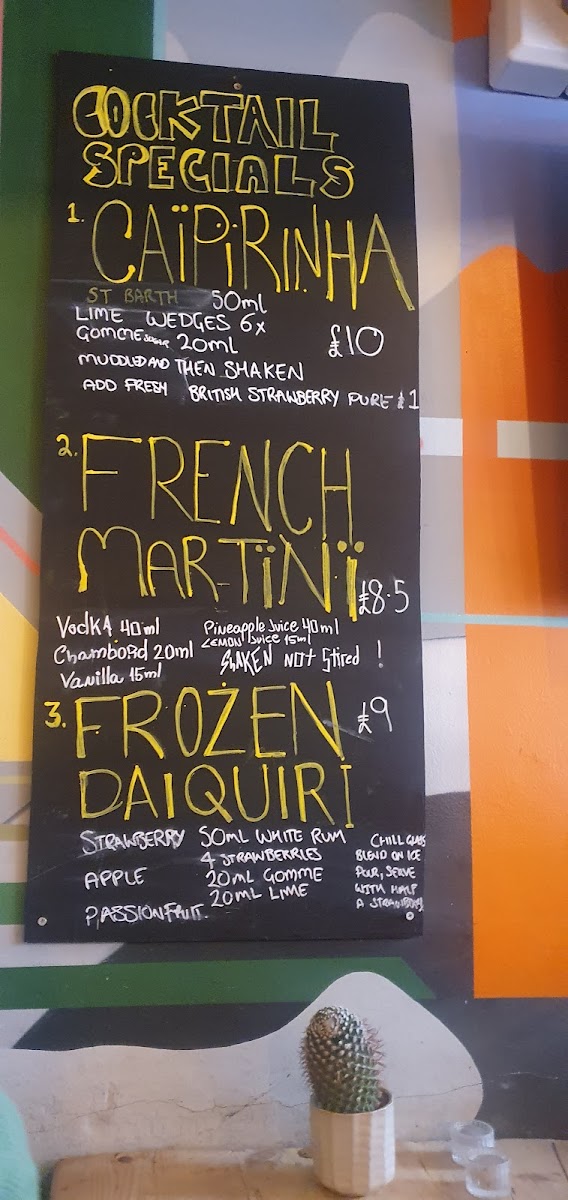 COCKTAIL
SPECIALS
1. CAÏPiRINHA
ST BARTH 50ml
LIME WEDGES 6x
GOMME 20ml
£10
MUDDLED AND THEN SHAKEN
ADD FRESH BRITISH STRAWBERRY PURE £1
2. FRENCH
MARTINÏ
£8.5
Vodka 40ml
Chambord 20ml
Vanilla 15ml
Pineapple Juice 40ml
LEMON Juice 15ml
SHAKEN NOt Stired !
3. FROZEN
£9
DAIQUIRI
STRAWBERRY
APPLE
PASSIONFRUIT.
50ML WHITE RUM
4 STRAWBERRIES
20ML GOMME
20ML LIME
CHILL GLASS
BLEND ON ICE
POUR, SERVE
WITH HALF
A STRAWBERRY